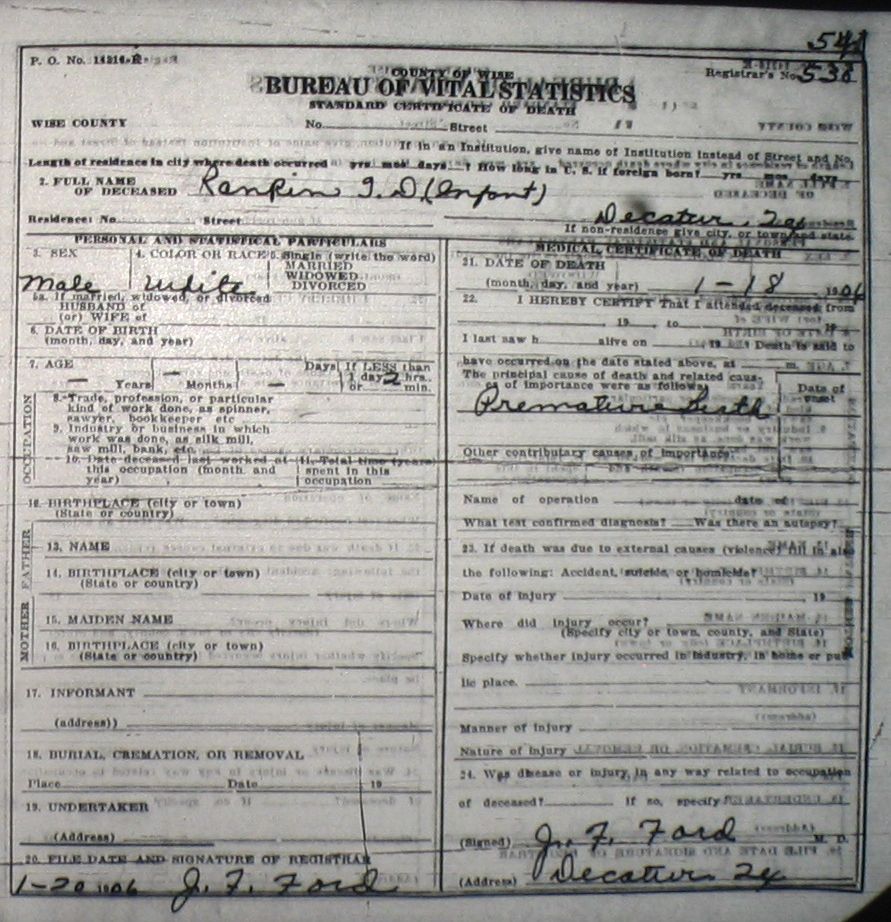 541
P. O. No. 14316-R
COUNTY OF WISE
Registrar's No. 538
BUREAU OF VITAL STATISTICS
STANDARD CERTIFICATE OF DEATH
WISE COUNTY No. Street
If in an Institution, give name of Institution instead of Street and No.
Length of residence in city where death occurred yrs mos days ? How long in U. S. if foreign born? yrs mos days
2. FULL NAME OF DECEASED Rankin I. D (Infant)
Residence: No. Street Decatur, Tex
If non-residence give city, or town and state
PERSONAL AND STATISTICAL PARTICULARS
3. SEX 4. COLOR OR RACE 5. Single (write the word)
MARRIED
WIDOWED
DIVORCED
Male White
5a. If married, widowed, or divorced
HUSBAND of
(or) WIFE of
6. DATE OF BIRTH
(month, day, and year)
7. AGE
— Years — Months — Days If LESS than
1 day 2 hrs.
or min.
OCCUPATION
8. Trade, profession, or particular
kind of work done, as spinner,
sawyer, bookkeeper etc
9. Industry or business in which
work was done, as silk mill,
saw mill, bank, etc.
10. Date deceased last worked at
this occupation (month and
year)
11. Total time (years)
spent in this
occupation
12. BIRTHPLACE (city or town)
(State or country)
FATHER
13. NAME
14. BIRTHPLACE (city or town)
(State or country)
MOTHER
15. MAIDEN NAME
16. BIRTHPLACE (city or town)
(State or country)
17. INFORMANT
(address))
18. BURIAL, CREMATION, OR REMOVAL
Place Date 19
19. UNDERTAKER
(Address)
20. FILE DATE AND SIGNATURE OF REGISTRAR
1-20 1906 J. F. Ford
MEDICAL CERTIFICATE OF DEATH
21. DATE OF DEATH
(month, day, and year) 1-18 1906
22. I HEREBY CERTIFY That I attended deceased from
, 19 , to 19
I last saw h alive on 19 Death is said to
have occurred on the date stated above, at m.
The principal cause of death and related caus-
es of importance were as follows:
Date of onset
Premature birth
Other contributary causes of importance:
Name of operation date of
What test confirmed diagnosis? Was there an autopsy?
23. If death was due to external causes (violence) fill in also
the following: Accident, suicide, or homicide?
Date of injury 19
Where did injury occur?
(Specify city or town, county, and State)
Specify whether injury occurred in industry, in home or pub
lic place.
Manner of injury
Nature of injury
24. Was disease or injury, in any way related to occupation
of deceased? If so, specify
(Signed) J. F. Ford M. D.
(Address) Decatur Tex